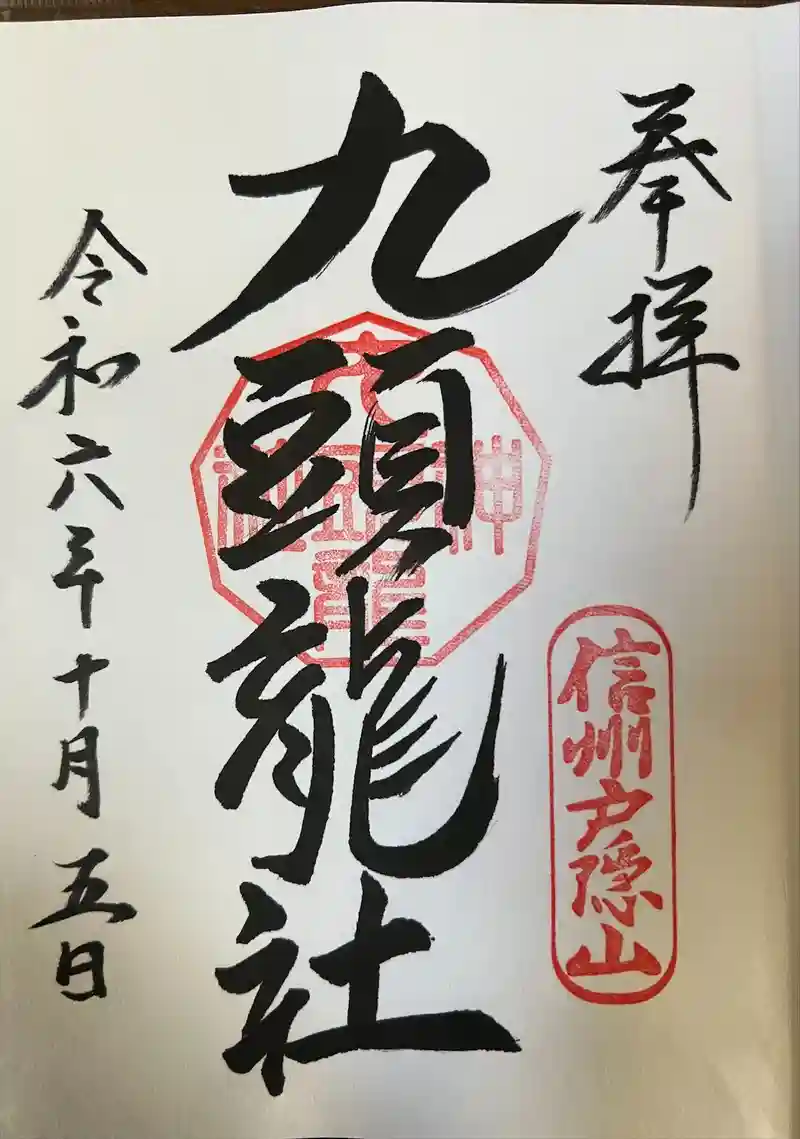 奉拝
信州戸隠山
九頭龍社
令和六年十月五日